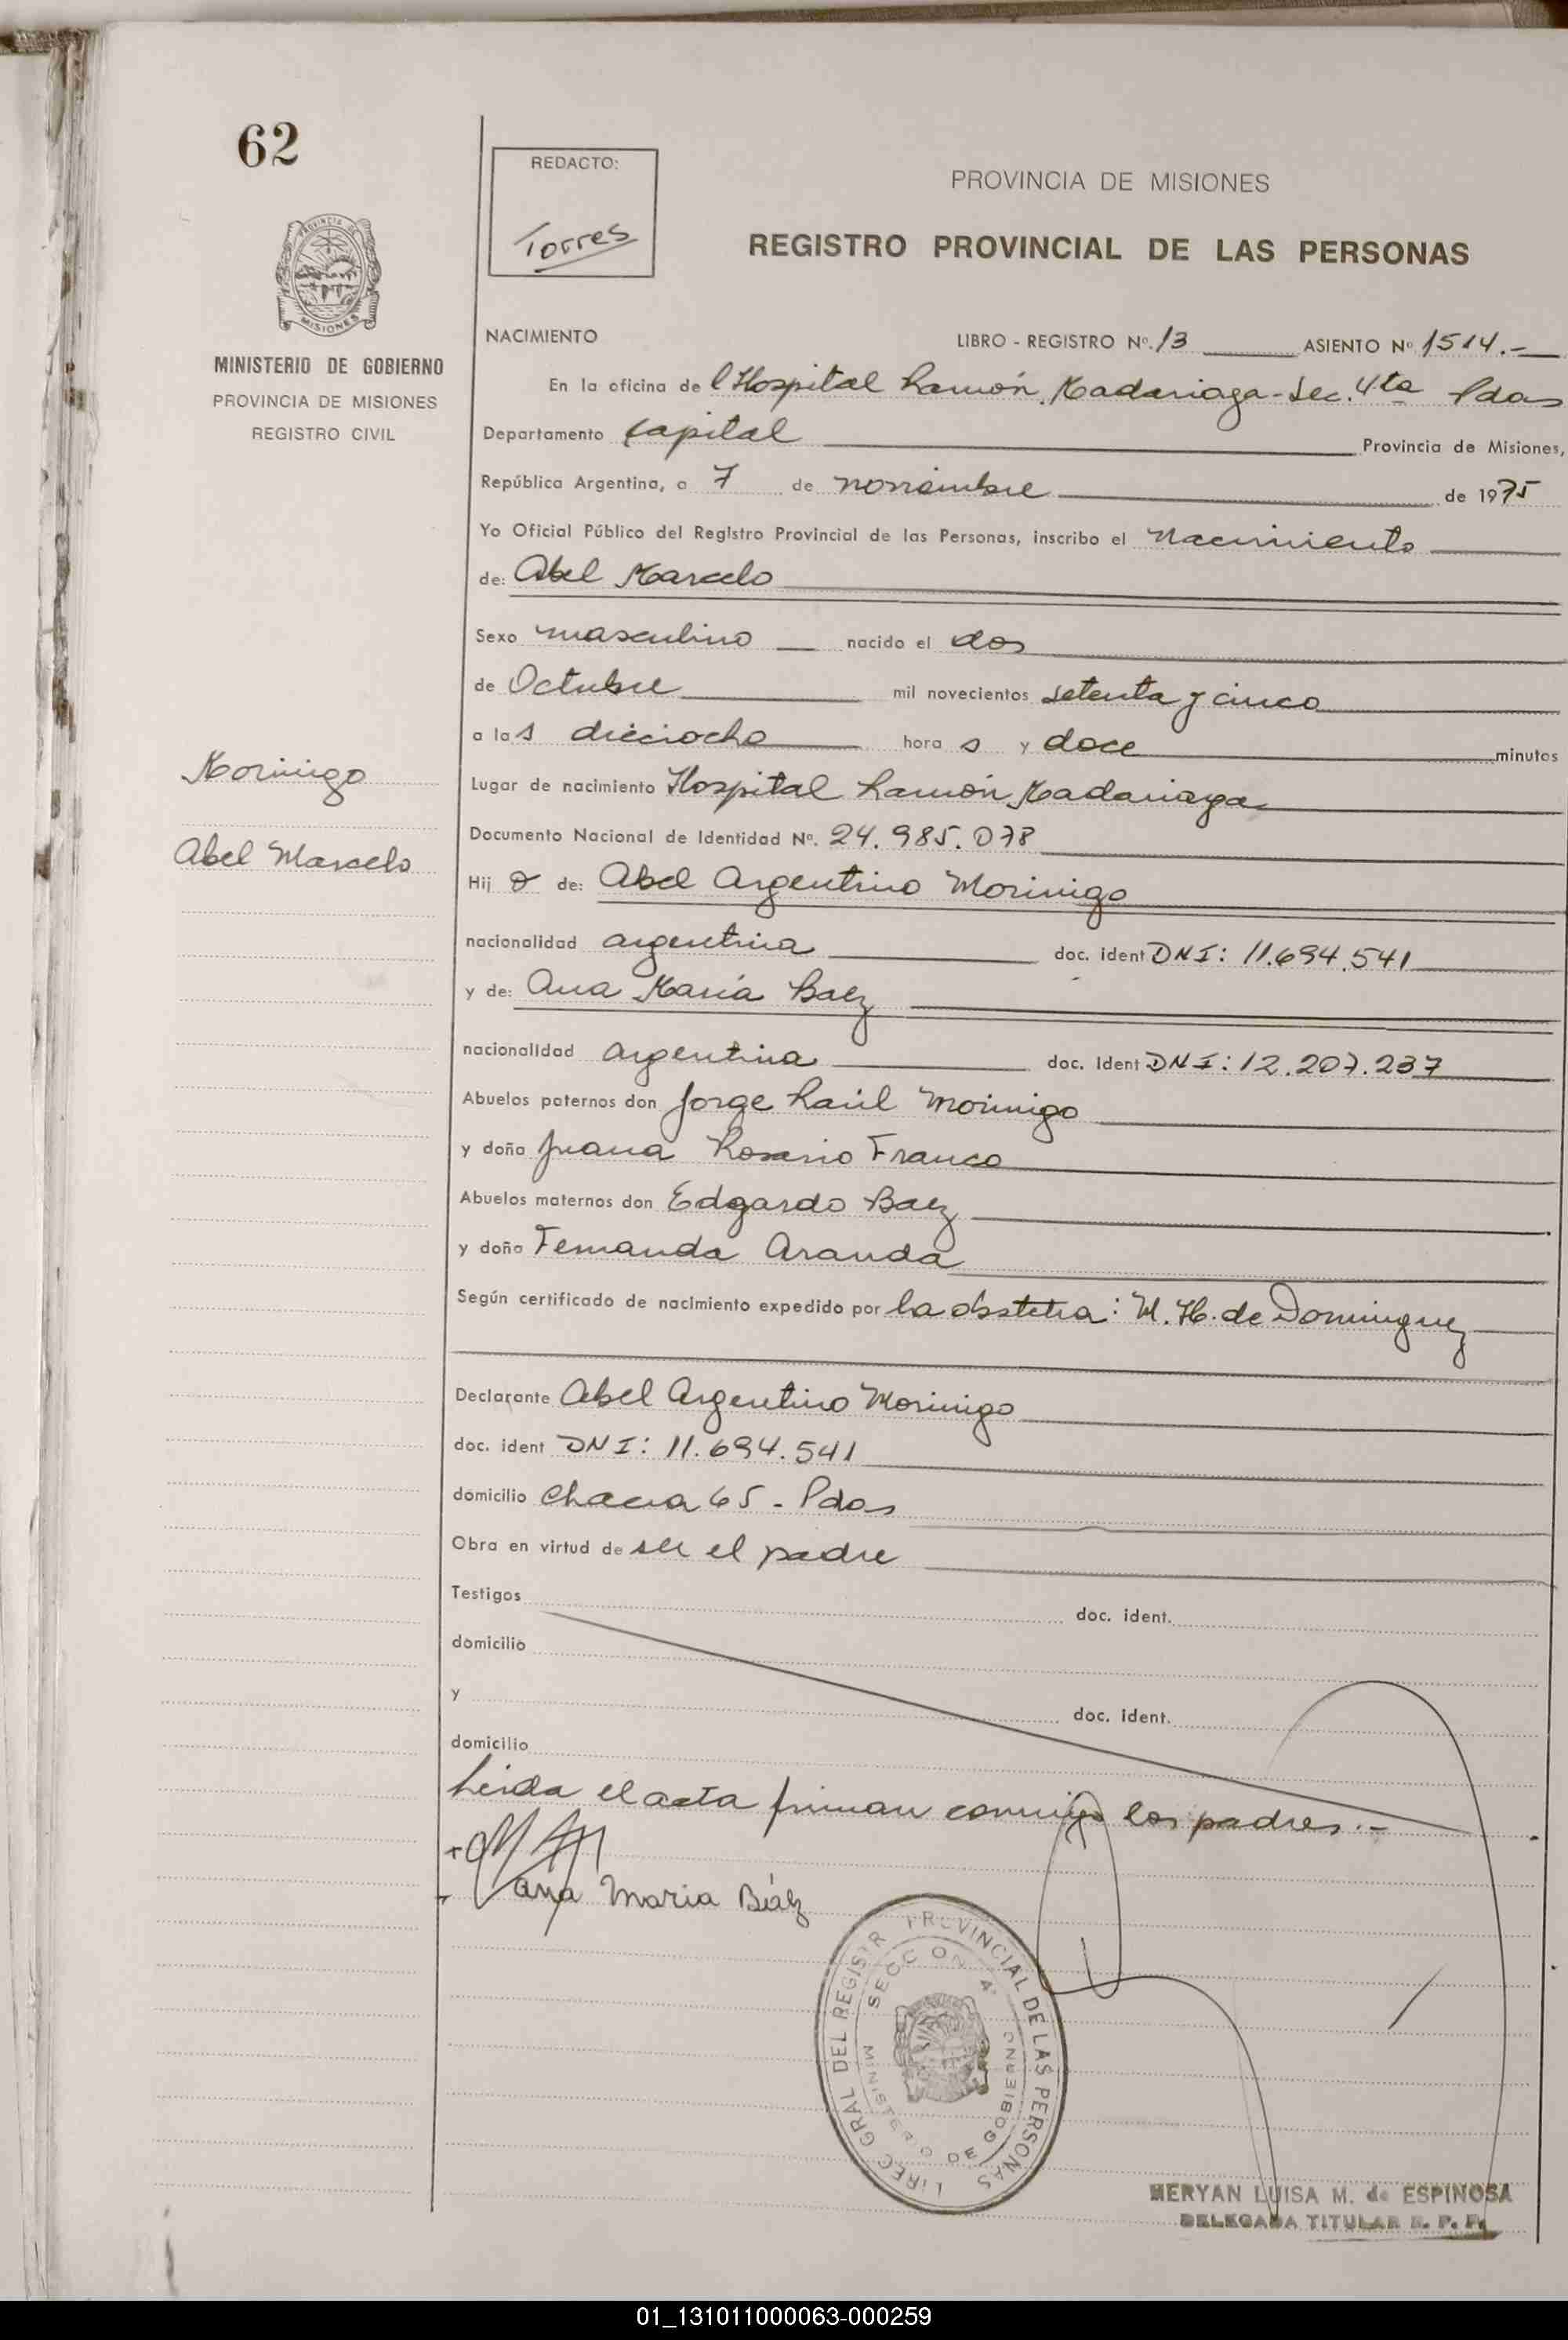 62
REDACTO:
Torres
PROVINCIA DE MISIONES
REGISTRO PROVINCIAL DE LAS PERSONAS
MISIONES
MINISTERIO DE GOBIERNO
PROVINCIA DE MISIONES
REGISTRO CIVIL
NACIMIENTO LIBRO - REGISTRO Nº. 13 ASIENTO Nº 1514.-
En la oficina del Hospital Ramón Madariaga - Sec. 4ta Pdas
Departamento Capital Provincia de Misiones,
República Argentina, a 7 de noviembre de 1975
Yo Oficial Público del Registro Provincial de las Personas, inscribo el Nacimiento
de: Abel Marcelo
Sexo masculino nacido el dos
de Octubre mil novecientos setenta y cinco
a las dieciocho horas y doce minutos
Morinigo
Abel Marcelo
Lugar de nacimiento Hospital Ramón Madariaga
Documento Nacional de Identidad Nº. 24.985.078
Hijo de: Abel Argentino Morinigo
nacionalidad argentina doc. ident DNI: 11.694.541
y de: Ana María Baez
nacionalidad argentina doc. ident DNI: 12.207.237
Abuelos paternos don Jorge Raúl Morinigo
y doña Juana Rosario Franco
Abuelos maternos don Edgardo Baez
y doña Fernanda Aranda
Según certificado de nacimiento expedido por la obstetra: M. H. de Dominguez
Declarante Abel Argentino Morinigo
doc. ident DNI: 11.694.541
domicilio Chacra 65 - Pdas
Obra en virtud de ser el padre
Testigos doc. ident.
domicilio
y doc. ident.
domicilio
Leida el acta firman conmigo los padres.-
Ana Maria Báez
DIREC GRAL DEL REGISTR PROVINCIAL DE LAS PERSONAS
SECCION 4ª
MINISTERIO DE GOBIERNO
MERYAN LUISA M. de ESPINOSA
DELEGADA TITULAR R. P. P.
01_131011000063-000259